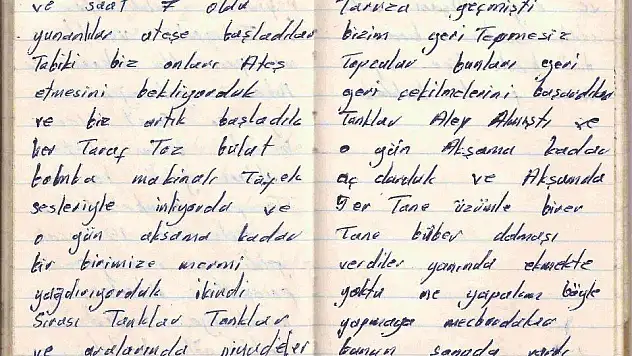 ve saat 7 oldu
yunanlılar ateşe başladılar
Tabiki biz onları Ateş
etmesini bekliyorduk
ve biz artık başladık
her Taraf Toz bulut
bomba makinalı Tüfek
sesleriyle inliyordu ve
o gün akşama kadar
bir birimize mermi
yağdırıyorduk ikindi
Sırası Tanklar Tanklar
ve aralarında piyadeler
Taruza geçmişti
bizim geri Tepmesiz
Topcular bunları geri
geri çekilmelerini başardılar
Tanklar Alev Almıştı ve
o gün Akşama kadar
aç durduk ve Akşamda
9 er Tane üzümle birer
Tane büber dolması
verdiler yanında ekmekte
yoktu ne yapalım böyle
yapmaya mecburdular
bunun sonada